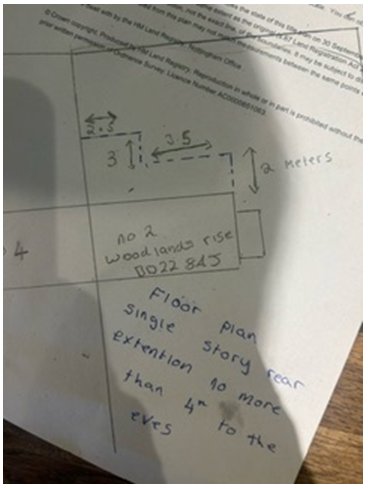 the state of this title plan on 30 September
as the original (s.67 Land Registration Act
not the exact line, of the boundaries. It may be subject to
from this plan may not match measurements between the same points
dealt with by the HM Land Registry, Nottingham Office
© Crown copyright. Produced by HM Land Registry. Reproduction in whole or in part is prohibited without the
prior written permission of Ordnance Survey. Licence Number
2.5
3.5
3
2 meters
4
no 2
woodlands rise
BD22 8AJ
Floor plan
single story rear
extention no more
than 4m to the
eves